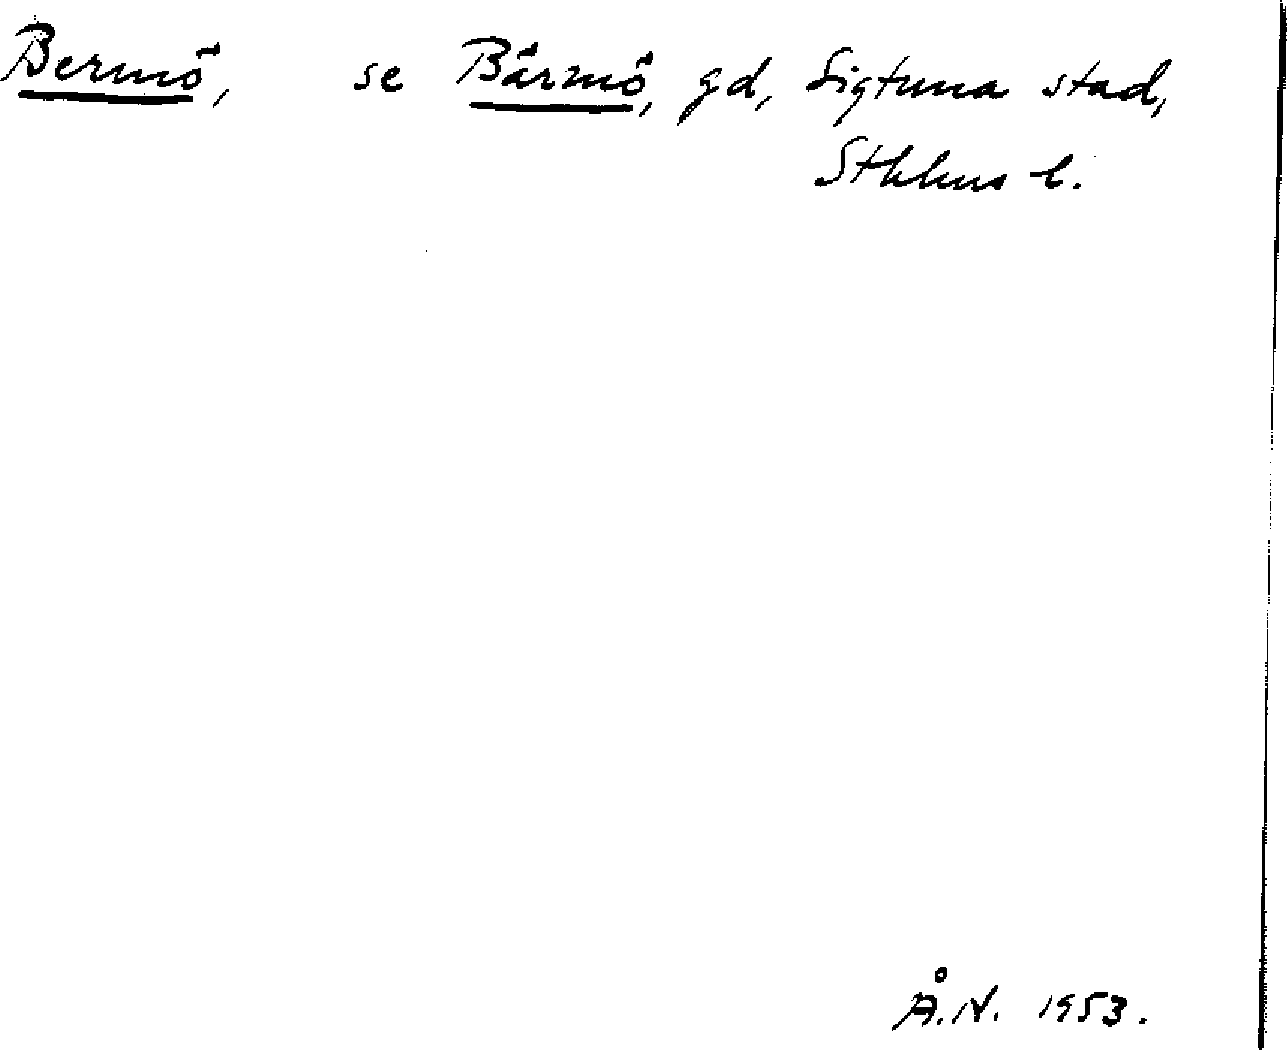 Bermö, se Bärmö, gd, Sigtuna stad,
Sthlms l.
Å.N. 1953.